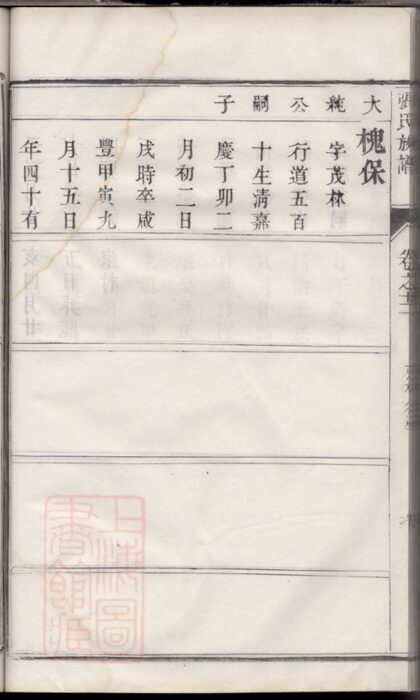 張氏族譜
卷之
大純公嗣子
槐保
字茂林
行道五百
十生清嘉
慶丁卯二
月初二日
戌時卒咸
豐甲寅九
月十五日
年四十有
上海圖
書館藏